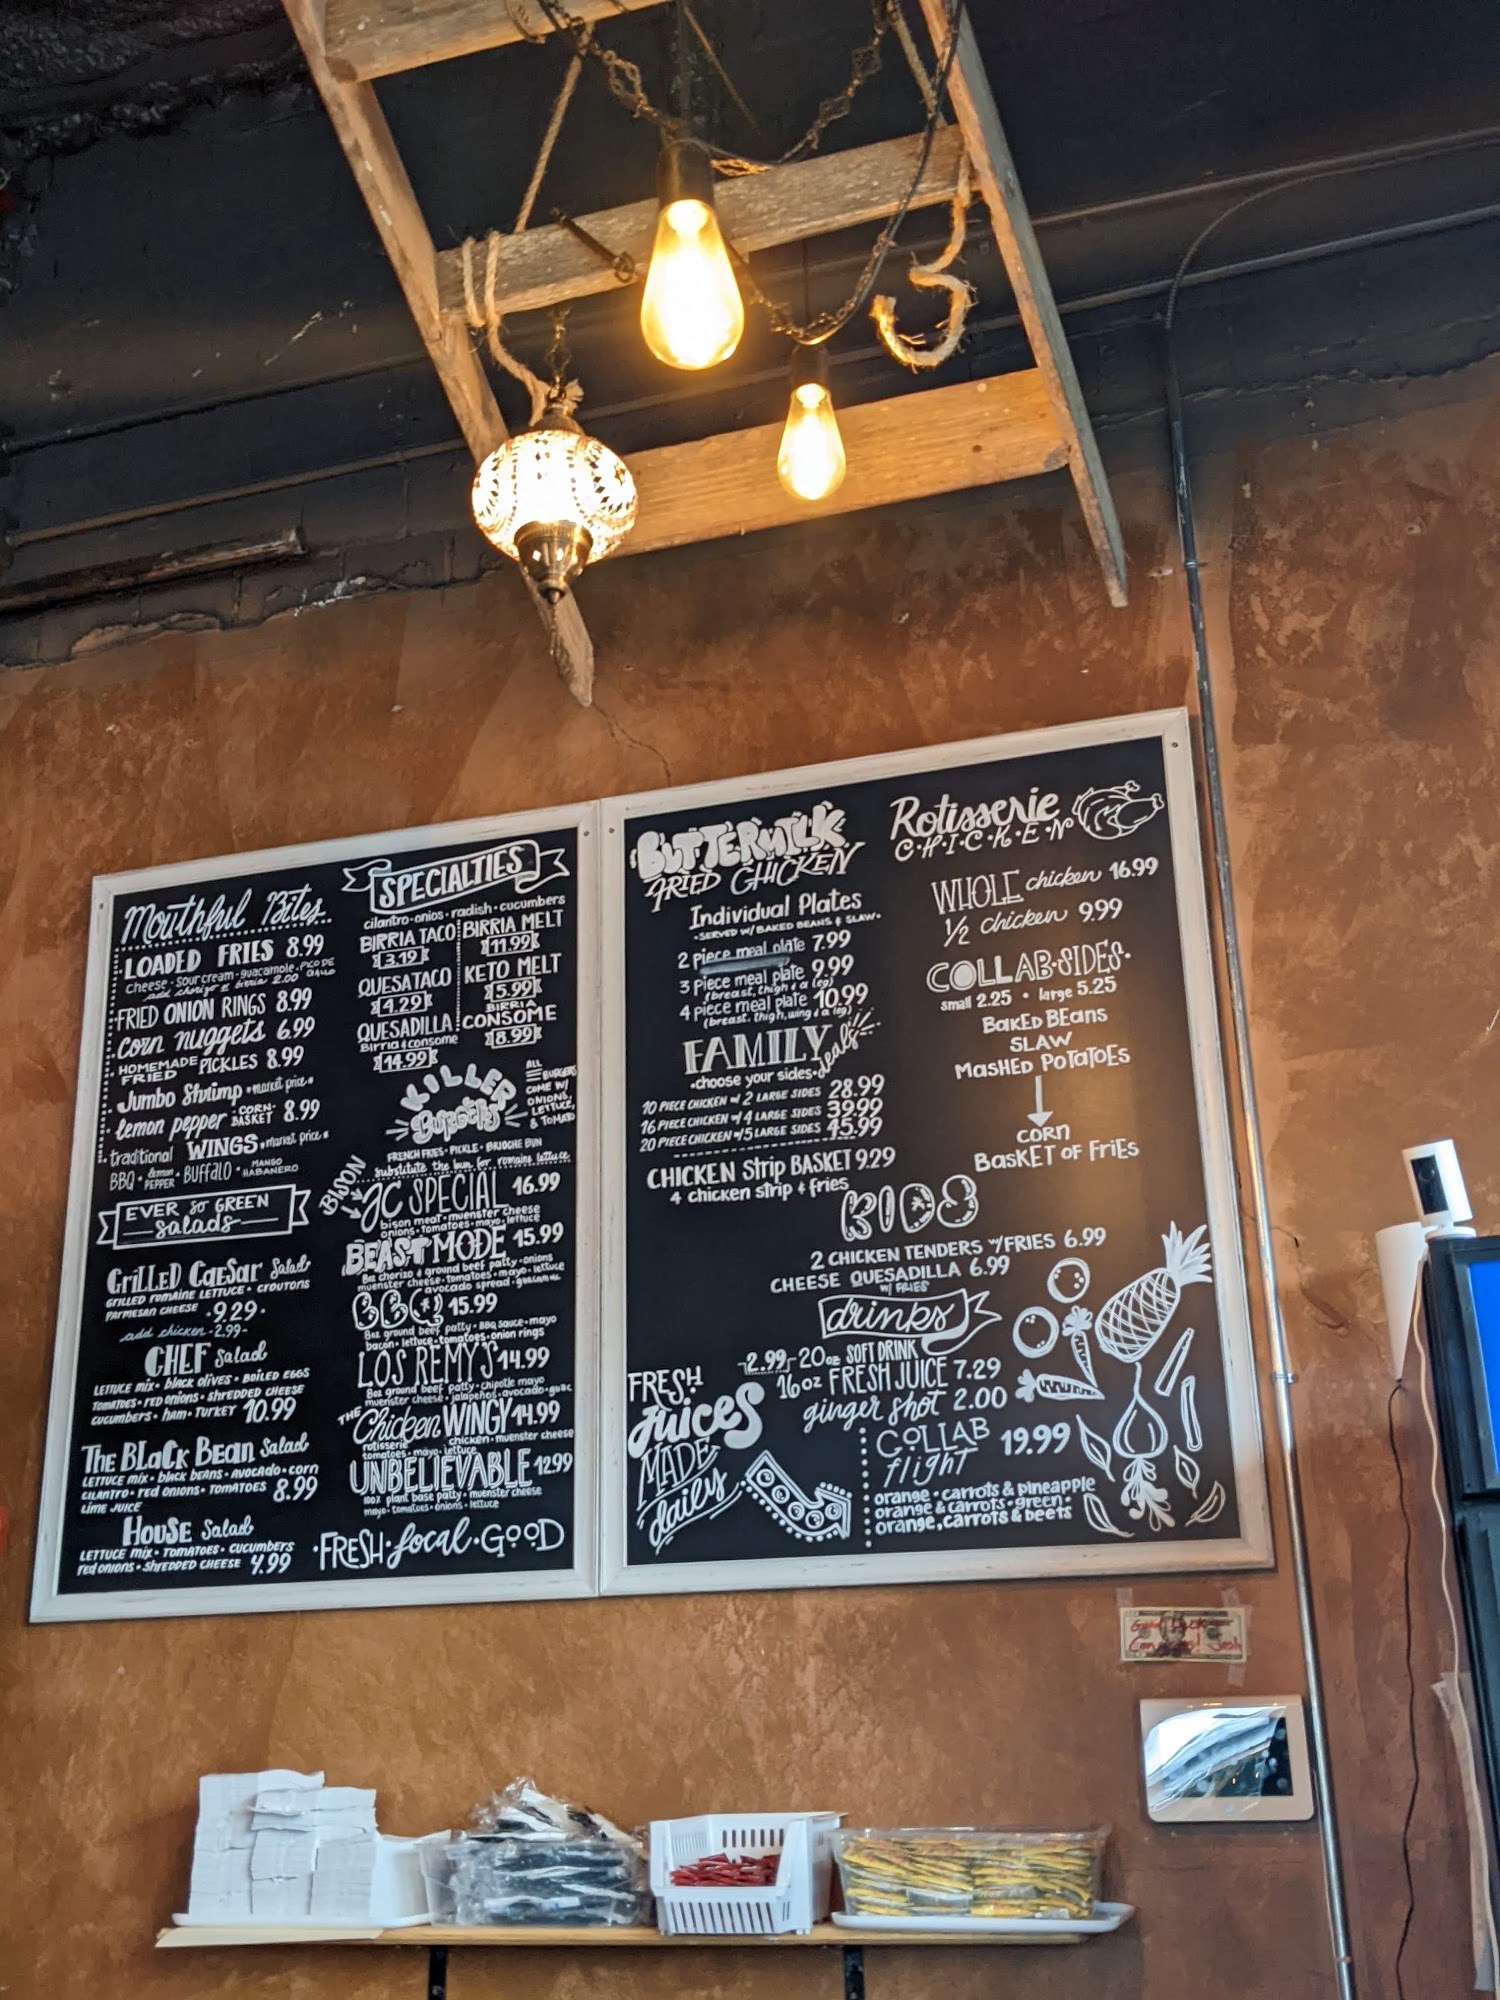 Mouthful Bites
LOADED FRIES 8.99
cheese · sour cream · guacamole · PICO DE GALLO
add chorizo or birria 2.00
FRIED ONION RINGS 8.99
corn nuggets 6.99
HOMEMADE FRIED PICKLES 8.99
Jumbo Shrimp · market price ·
lemon pepper CORN BASKET 8.99
traditional WINGS · market price ·
BBQ · lemon PEPPER · BUFFALO · MANGO HABANERO
EVER SO GREEN
Salads
GRILLED CAESAR Salad
GRILLED ROMAINE LETTUCE · CROUTONS
PARMESAN CHEESE · 9.29 ·
add chicken - 2.99 -
CHEF Salad
LETTUCE MIX · BLACK OLIVES · BOILED EGGS
TOMATOES · RED ONIONS · SHREDDED CHEESE
CUCUMBERS · HAM · TURKEY 10.99
THE BLACK BEAN Salad
LETTUCE MIX · BLACK BEANS · AVOCADO · CORN
CILANTRO · RED ONIONS · TOMATOES 8.99
LIME JUICE
HOUSE Salad
LETTUCE MIX · TOMATOES · CUCUMBERS
RED ONIONS · SHREDDED CHEESE 4.99
SPECIALTIES
cilantro · onios · radish · cucumbers
BIRRIA TACO
3.19
QUESATACO
4.29
QUESADILLA
Birria & consome
14.99
BIRRIA MELT
11.99
KETO MELT
5.99
BIRRIA
CONSOME
8.99
KILLER
Burgers
ALL
BURGERS
COME W/
ONIONS,
LETTUCE,
& TOMATO
FRENCH FRIES · PICKLE · BRIOCHE BUN
substitute the bun for romaine lettuce
BISON
JC SPECIAL 16.99
bison meat · muenster cheese
onions · tomatoes · mayo · lettuce
BEAST MODE 15.99
8oz chorizo & ground beef patty · onions
muenster cheese · tomatoes · mayo · lettuce
avocado spread · guacamole
BBQ 15.99
8oz ground beef patty · BBQ sauce · mayo
bacon · lettuce · tomatoes · onion rings
LOS REMY'S 14.99
8oz ground beef patty · chipotle mayo
muenster cheese · jalapeños · avocado · guac
THE Chicken WINGY 14.99
rotisserie chicken · muenster cheese
tomatoes · mayo · lettuce
UNBELIEVABLE 12.99
100% plant base patty · muenster cheese
mayo · tomatoes · onions · lettuce
· FRESH · local · GOOD
BUTTERMILK
FRIED CHICKEN
Individual Plates
· SERVED W/ BAKED BEANS & SLAW ·
2 piece meal plate 7.99
3 piece meal plate 9.99
(breast, thigh & a leg)
4 piece meal plate 10.99
(breast, thigh, wing & a leg)
FAMILY deals
· choose your sides ·
10 PIECE CHICKEN w/ 2 LARGE SIDES 28.99
16 PIECE CHICKEN w/ 4 LARGE SIDES 39.99
20 PIECE CHICKEN w/ 5 LARGE SIDES 45.99
CHICKEN Strip BASKET 9.29
4 chicken strip & fries
Rotisserie
C·H·I·C·K·E·N
WHOLE chicken 16.99
1/2 chicken 9.99
COLLAB·SIDES·
small 2.25 · large 5.25
BAKED BEANS
SLAW
MASHED POTATOES
CORN
BASKET OF FRIES
KIDS
2 CHICKEN TENDERS W/FRIES 6.99
CHEESE QUESADILLA 6.99
W/ FRIES
drinks
-2.99- 20oz SOFT DRINK
16oz FRESH JUICE 7.29
ginger shot 2.00
COLLAB flight 19.99
orange · carrots & pineapple
orange & carrots · green ·
orange, carrots & beets
FRESH
Juices
MADE
daily
Good Luck
Josh